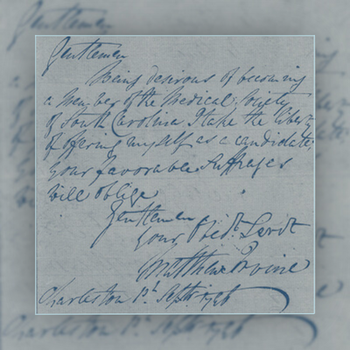 Gentlemen
Being desirous of becoming
a Member of the Medical Society
of South Carolina I take the liberty
of offering myself as a candidate,
your favorable Suffrages
will oblige
Gentlemen
Your Obedt. Servt
Matthew Irvine
Charleston 1st. Septr. 1796